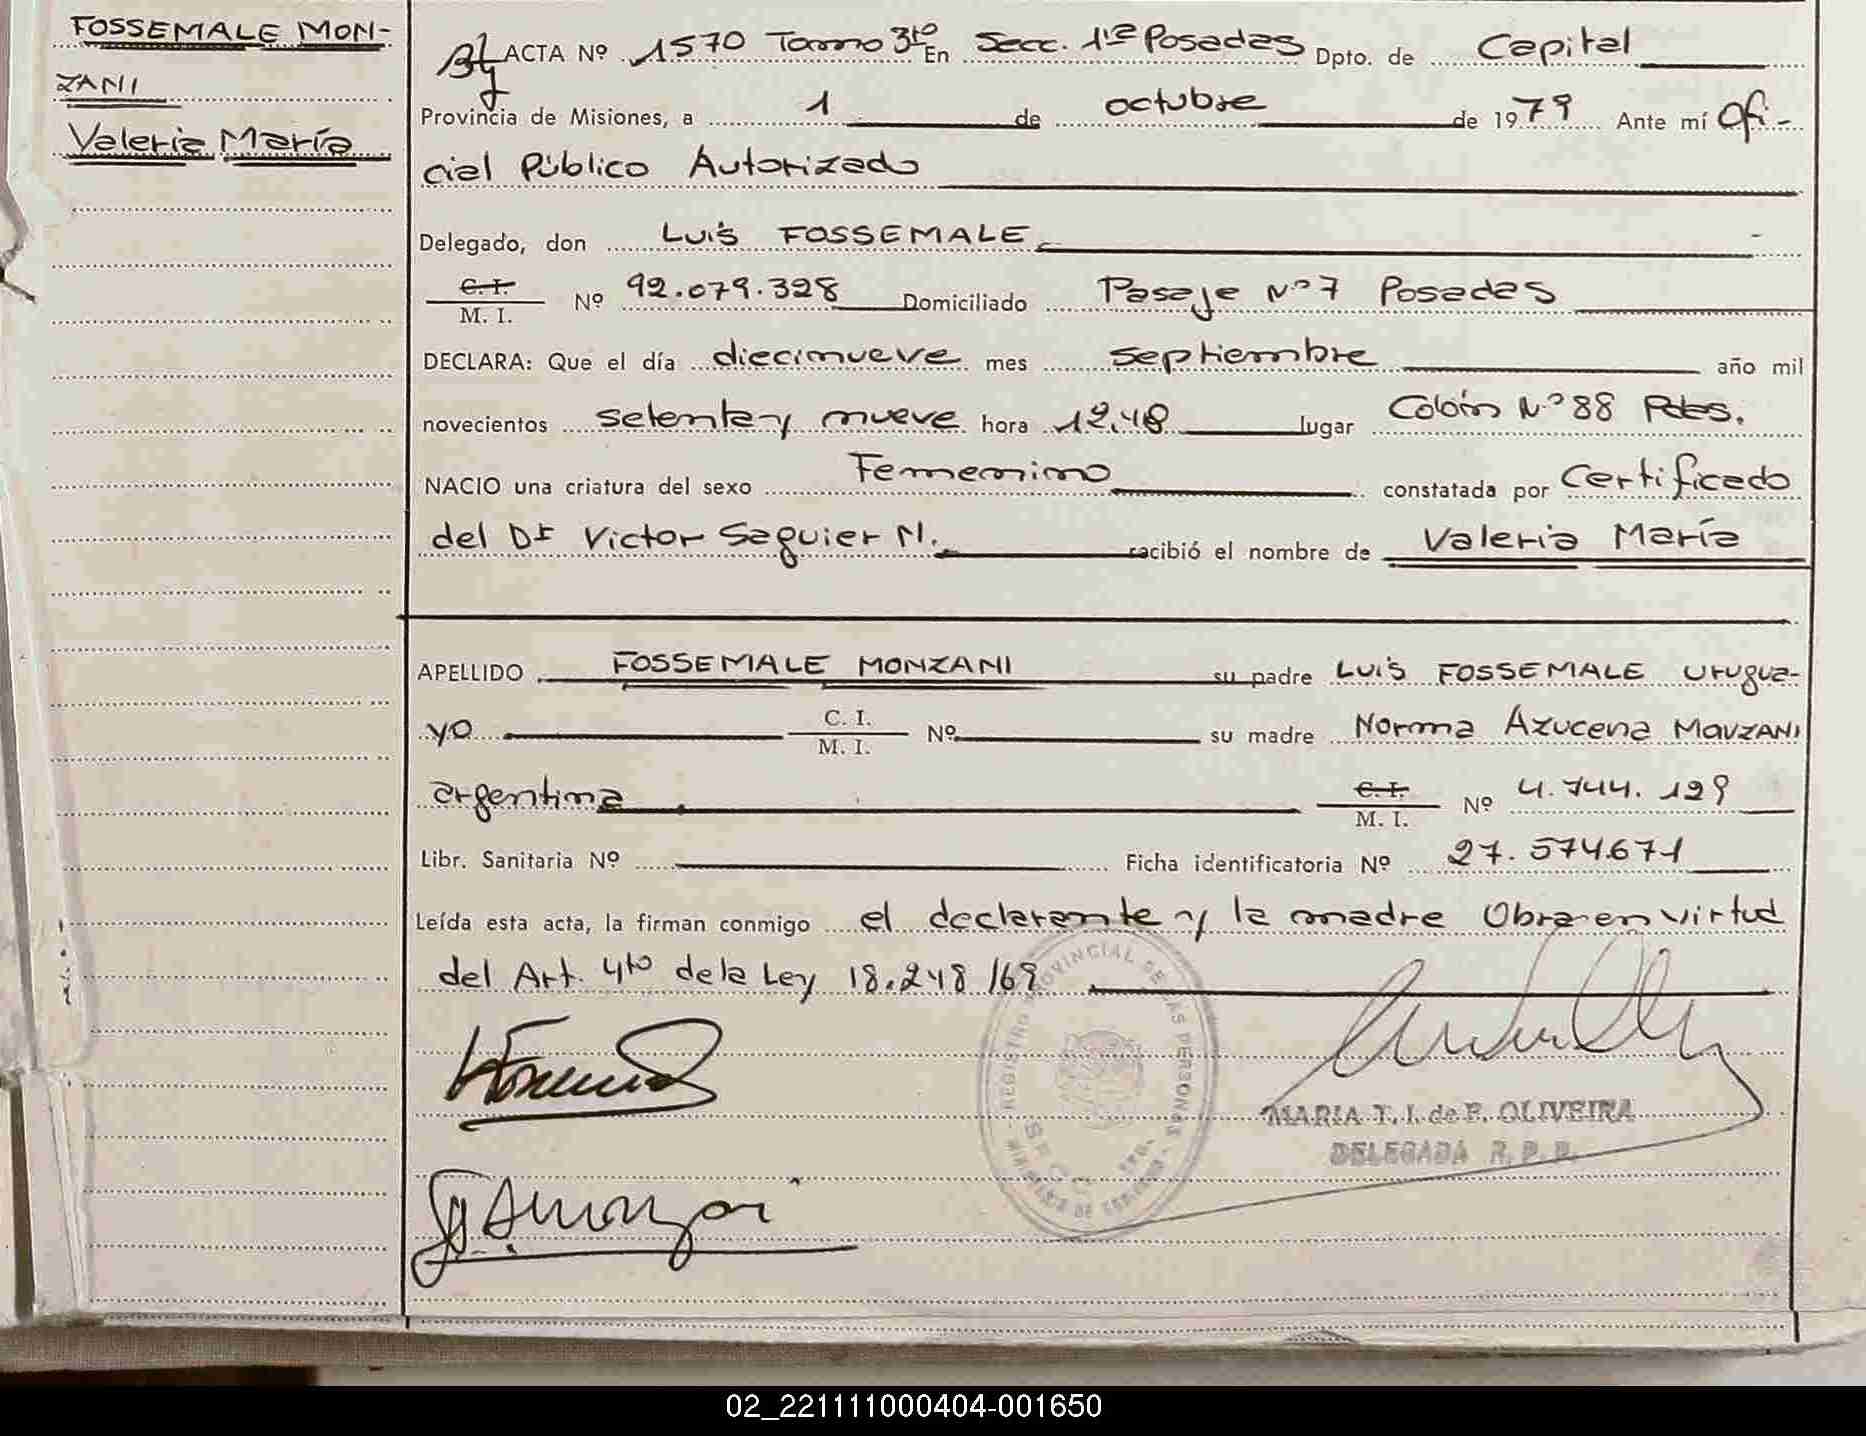 FOSSEMALE MON-
ZANI
Valeria María
ACTA Nº 1570 Tomo 3to En Secc. 1ra Posadas Dpto. de Capital
Provincia de Misiones, a 1 de octubre de 1979 Ante mí Ofi-
cial Público Autorizado
Delegado, don LUIS FOSSEMALE
C. I.
M. I. Nº 92.079.328 Domiciliado Pasaje Nº 7 Posadas
DECLARA: Que el día diecinueve mes septiembre año mil
novecientos setenta y nueve hora 12,48 lugar Colón Nº 88 Pdas.
NACIO una criatura del sexo Femenino constatada por Certificado
del Dr Victor Saguier N. recibió el nombre de Valeria María
APELLIDO FOSSEMALE MONZANI su padre LUIS FOSSEMALE Urugua-
yo C. I. M. I. Nº su madre Norma Azucena MONZANI
argentina C. I. M. I. Nº 4.744.129
Libr. Sanitaria Nº Ficha identificatoria Nº 27.574.671
Leída esta acta, la firman conmigo el declarante y la madre Obra en virtud
del Art. 4to de la Ley 18.248/69
REGISTRO PROVINCIAL DE LAS PERSONAS
SECC.
MINISTERIO DE GOBIERNO
MARIA T. I. de P. OLIVEIRA
DELEGADA R. P. P.
02_221111000404-001650